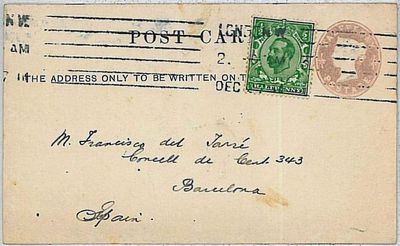 NW
LONDON NW
AM
POST CARD
2.
AM
DEC
THE ADDRESS ONLY TO BE WRITTEN ON
HALFPENNY
M. Francisco del Tarré
Concell de Cent 343
Barcelona
Spain.